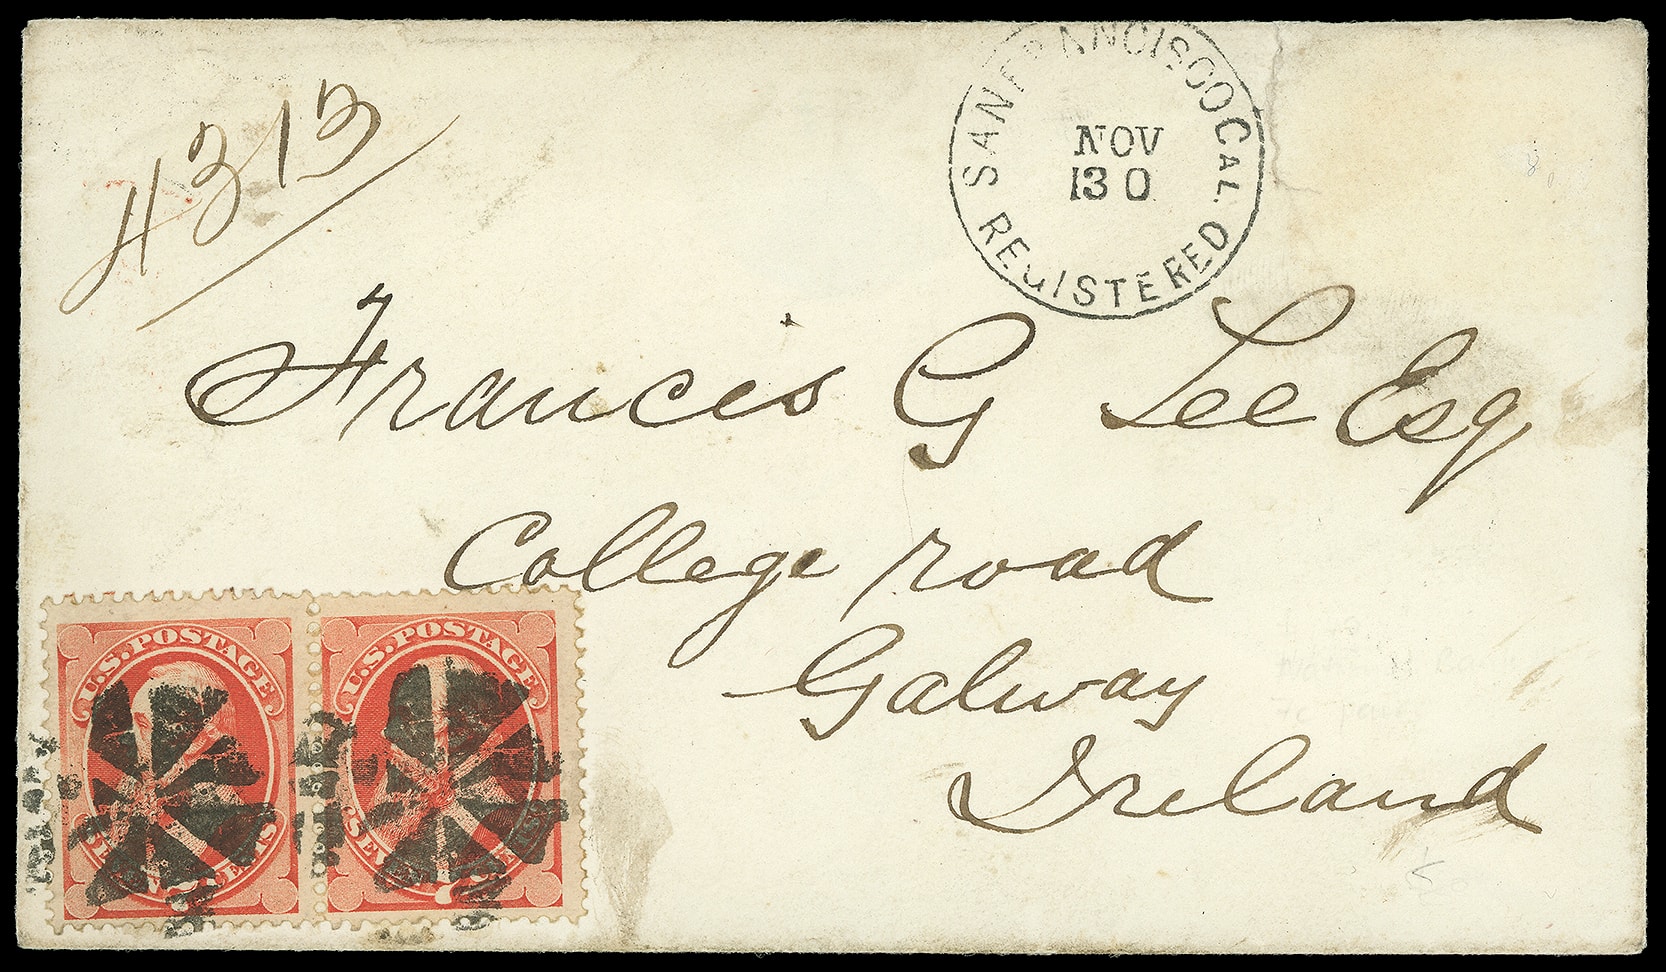 4313
SAN FRANCISCO CAL.
NOV
13 0
REGISTERED
Francis G Lee Esq
College road
Galway
Ireland
U.S. POSTAGE
U.S. POSTAGE